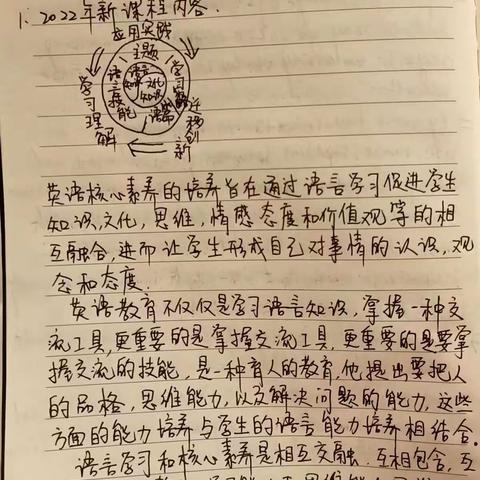 1. 2022年新课程内容.
应用实践
主题
学习理解
迁移创新
语言知识
文化知识
语言技能
学习策略
语篇
英语核心素养的培养旨在通过语言学习促进学生
知识,文化,思维,情感态度和价值观等的相
互融合,进而让学生形成自己对事情的认识,观
念和态度.
英语教育不仅仅是学习语言知识,掌握一种交
流工具,更重要的是掌握交流工具,更重要的是要掌
握交流的技能,是一种育人的教育,他提出要把人
的品格,思维能力,以及解决问题的能力,这些
方面的能力培养与学生的语言能力培养相结合。
语言学习和核心素养是相互交融,互相包含,互